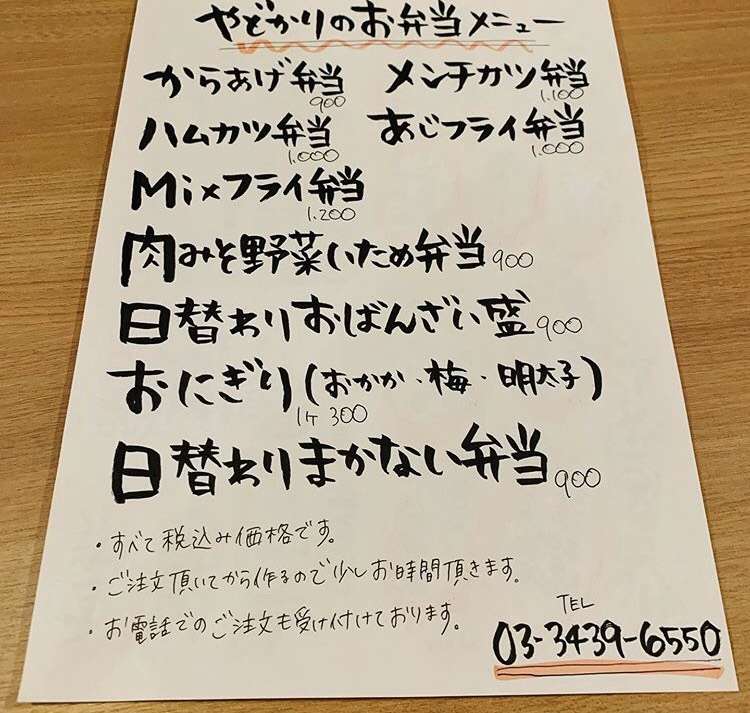 やどかりのお弁当メニュー
からあげ弁当 900 メンチカツ弁当 1.100
ハムカツ弁当 1.000 あじフライ弁当 1.000
Mixフライ弁当 1.200
肉みそ野菜いため弁当 900
日替わりおばんざい盛 900
おにぎり(おかか・梅・明太子)
1ヶ 300
日替わりまかない弁当 900
・すべて税込み価格です。
・ご注文頂いてから作るので少しお時間頂きます。
・お電話でのご注文も受け付けております。
TEL
03-3439-6550